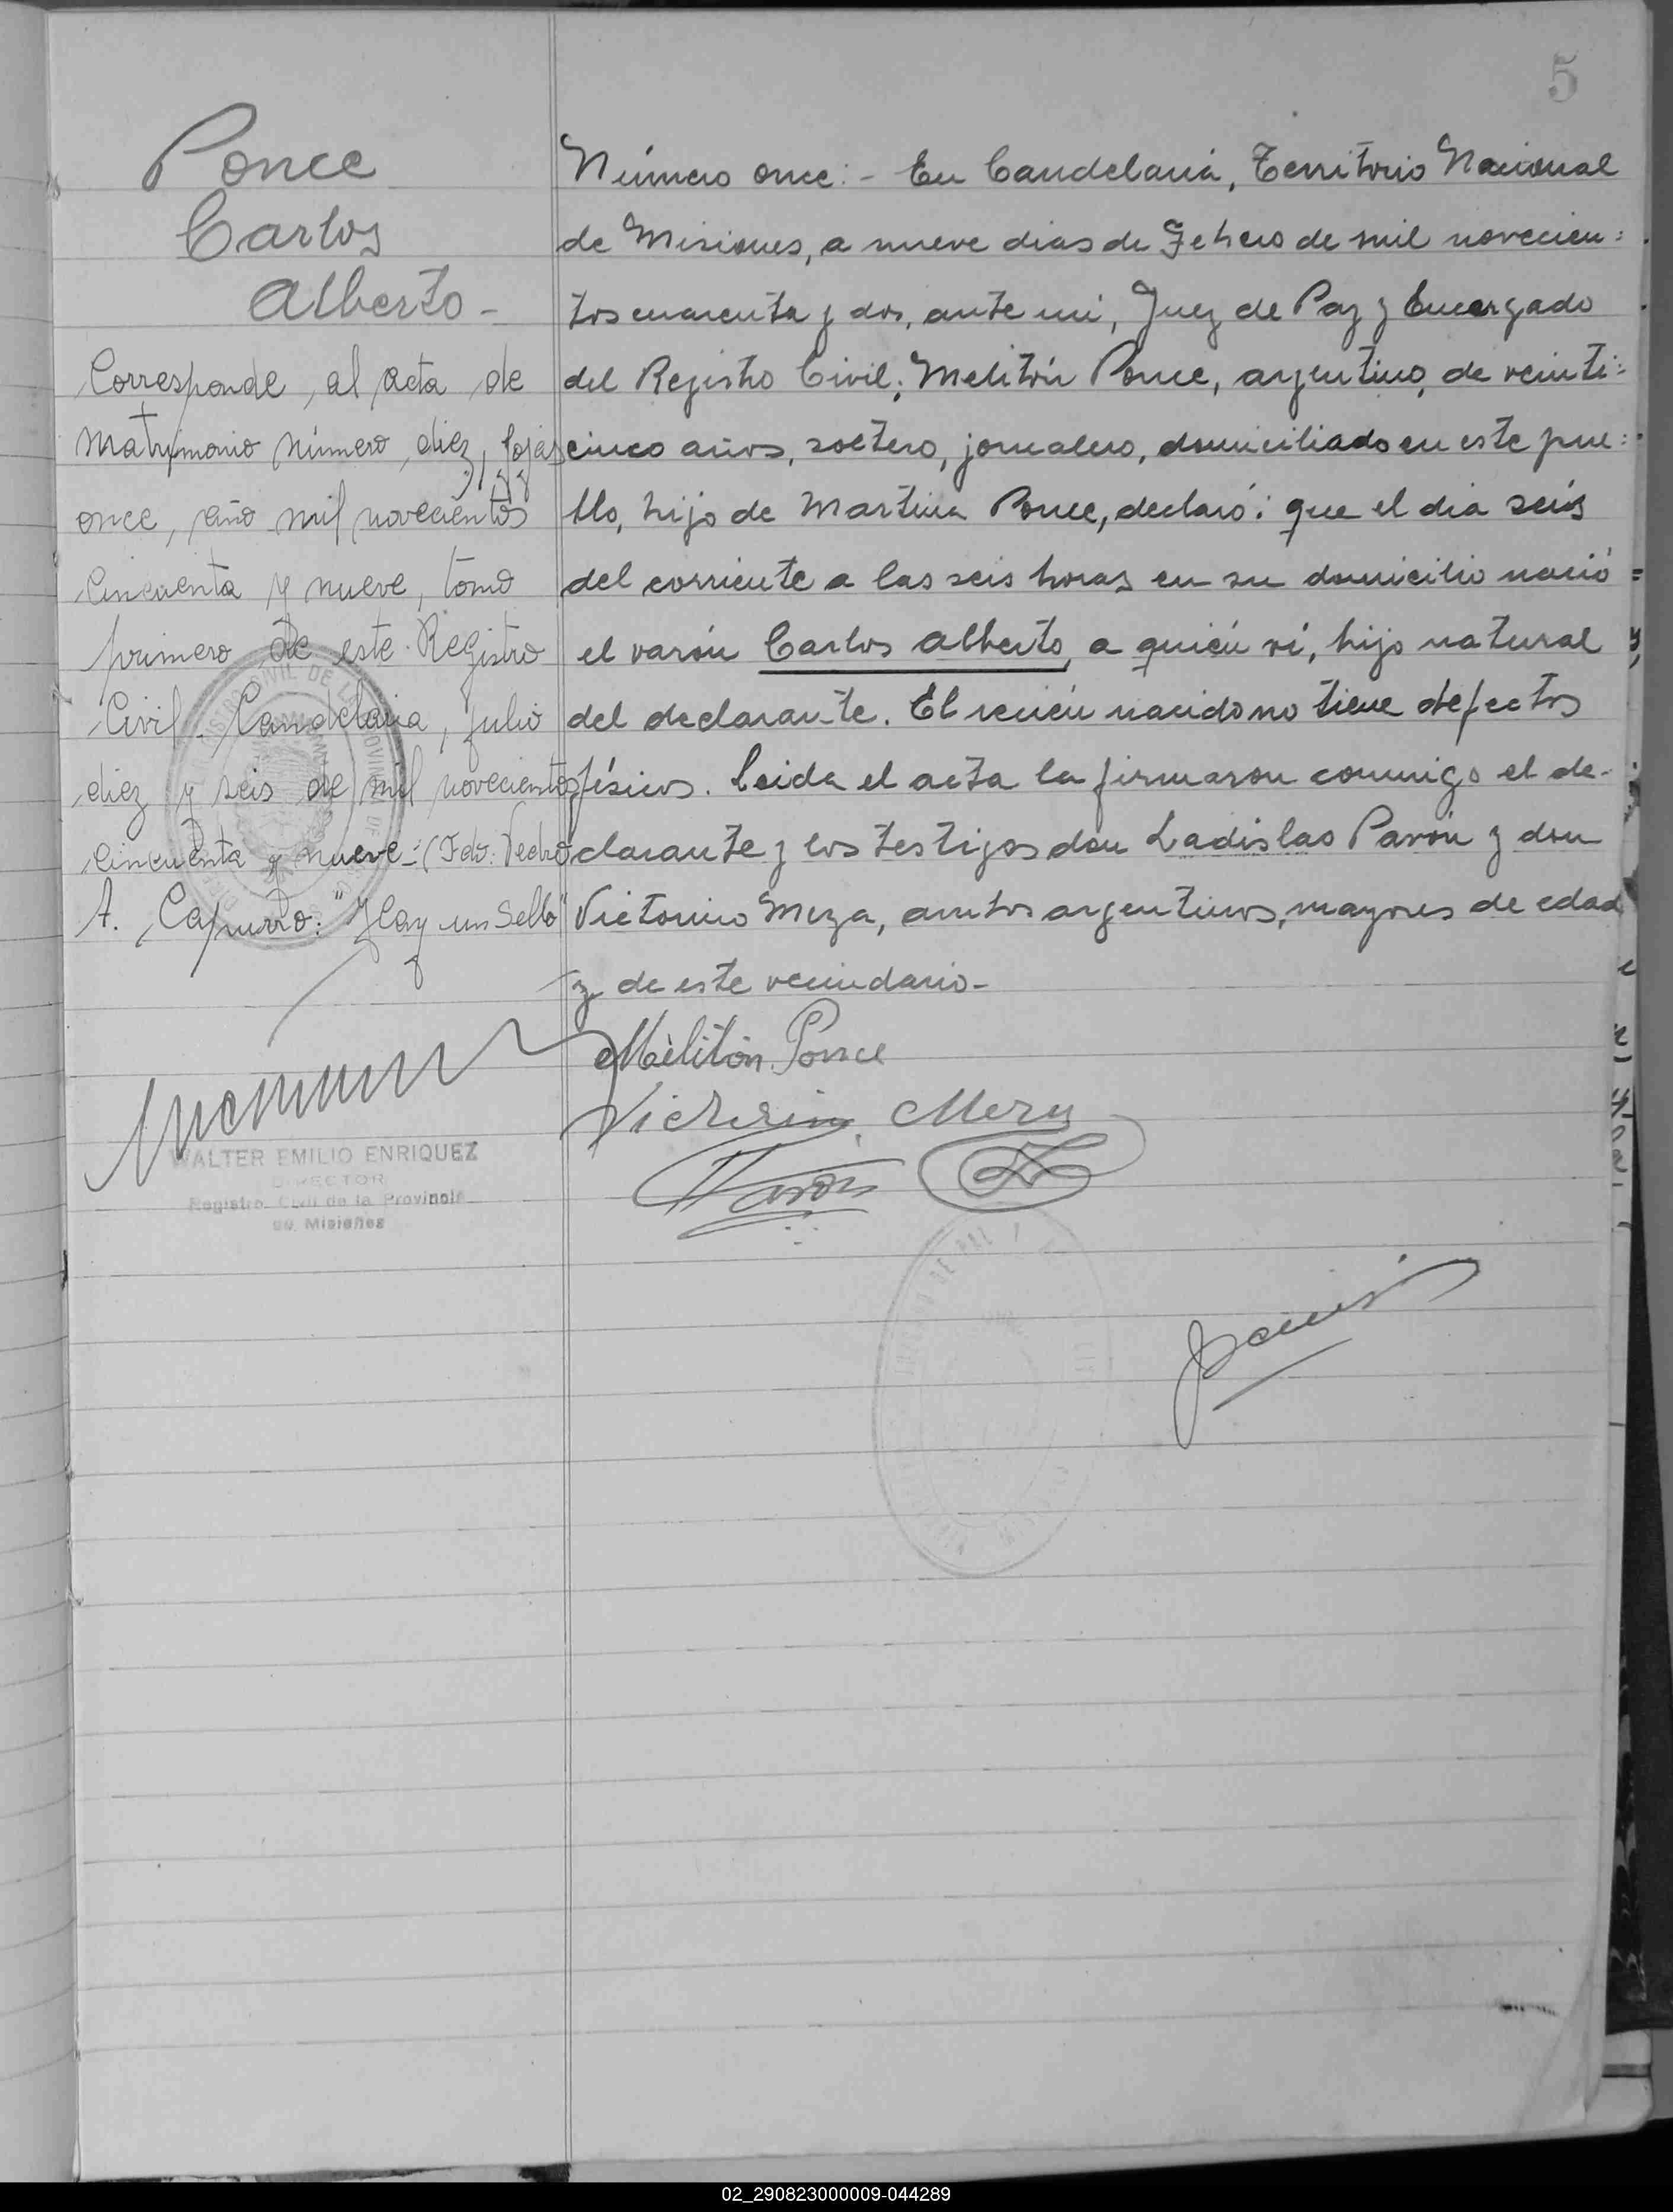 5
Ponce
Carlos
Alberto -
Corresponde, al acta de
matrimonio número, diez, fojas
once, año mil novecientos
cincuenta y nueve, tomo
primero de este Registro
Civil. Candelaria, julio
diez y seis de mil novecientos
cincuenta y nueve - (Fdo: Pedro
A. Capurro: "Hay un Sello"
WALTER EMILIO ENRIQUEZ
DIRECTOR
Registro Civil de la Provincia
de Misiones
Número once: - En Candelaria, Territorio Nacional
de Misiones, a nueve dias de Febrero de mil novecien=
tos cuarenta y dos, ante mi, Juez de Paz y Encargado
del Registro Civil; Melitón Ponce, argentino, de veinti=
cinco años, soltero, jornalero, domiciliado en este pue=
blo, hijo de Martina Ponce, declaró: que el dia seis
del corriente a las seis horas en su domicilio nació
el varón Carlos Alberto, a quién ví, hijo natural
del declarante. El recién nacido no tiene defectos
físicos. Leida el acta la firmaron conmigo el de-
clarante y los testigos don Ladislao Pavón y don
Victorino Meza, ambos argentinos, mayores de edad
y de este vecindario -
Mèlitón Ponce
Victorino Meza
Pavón
02_290823000009-044289